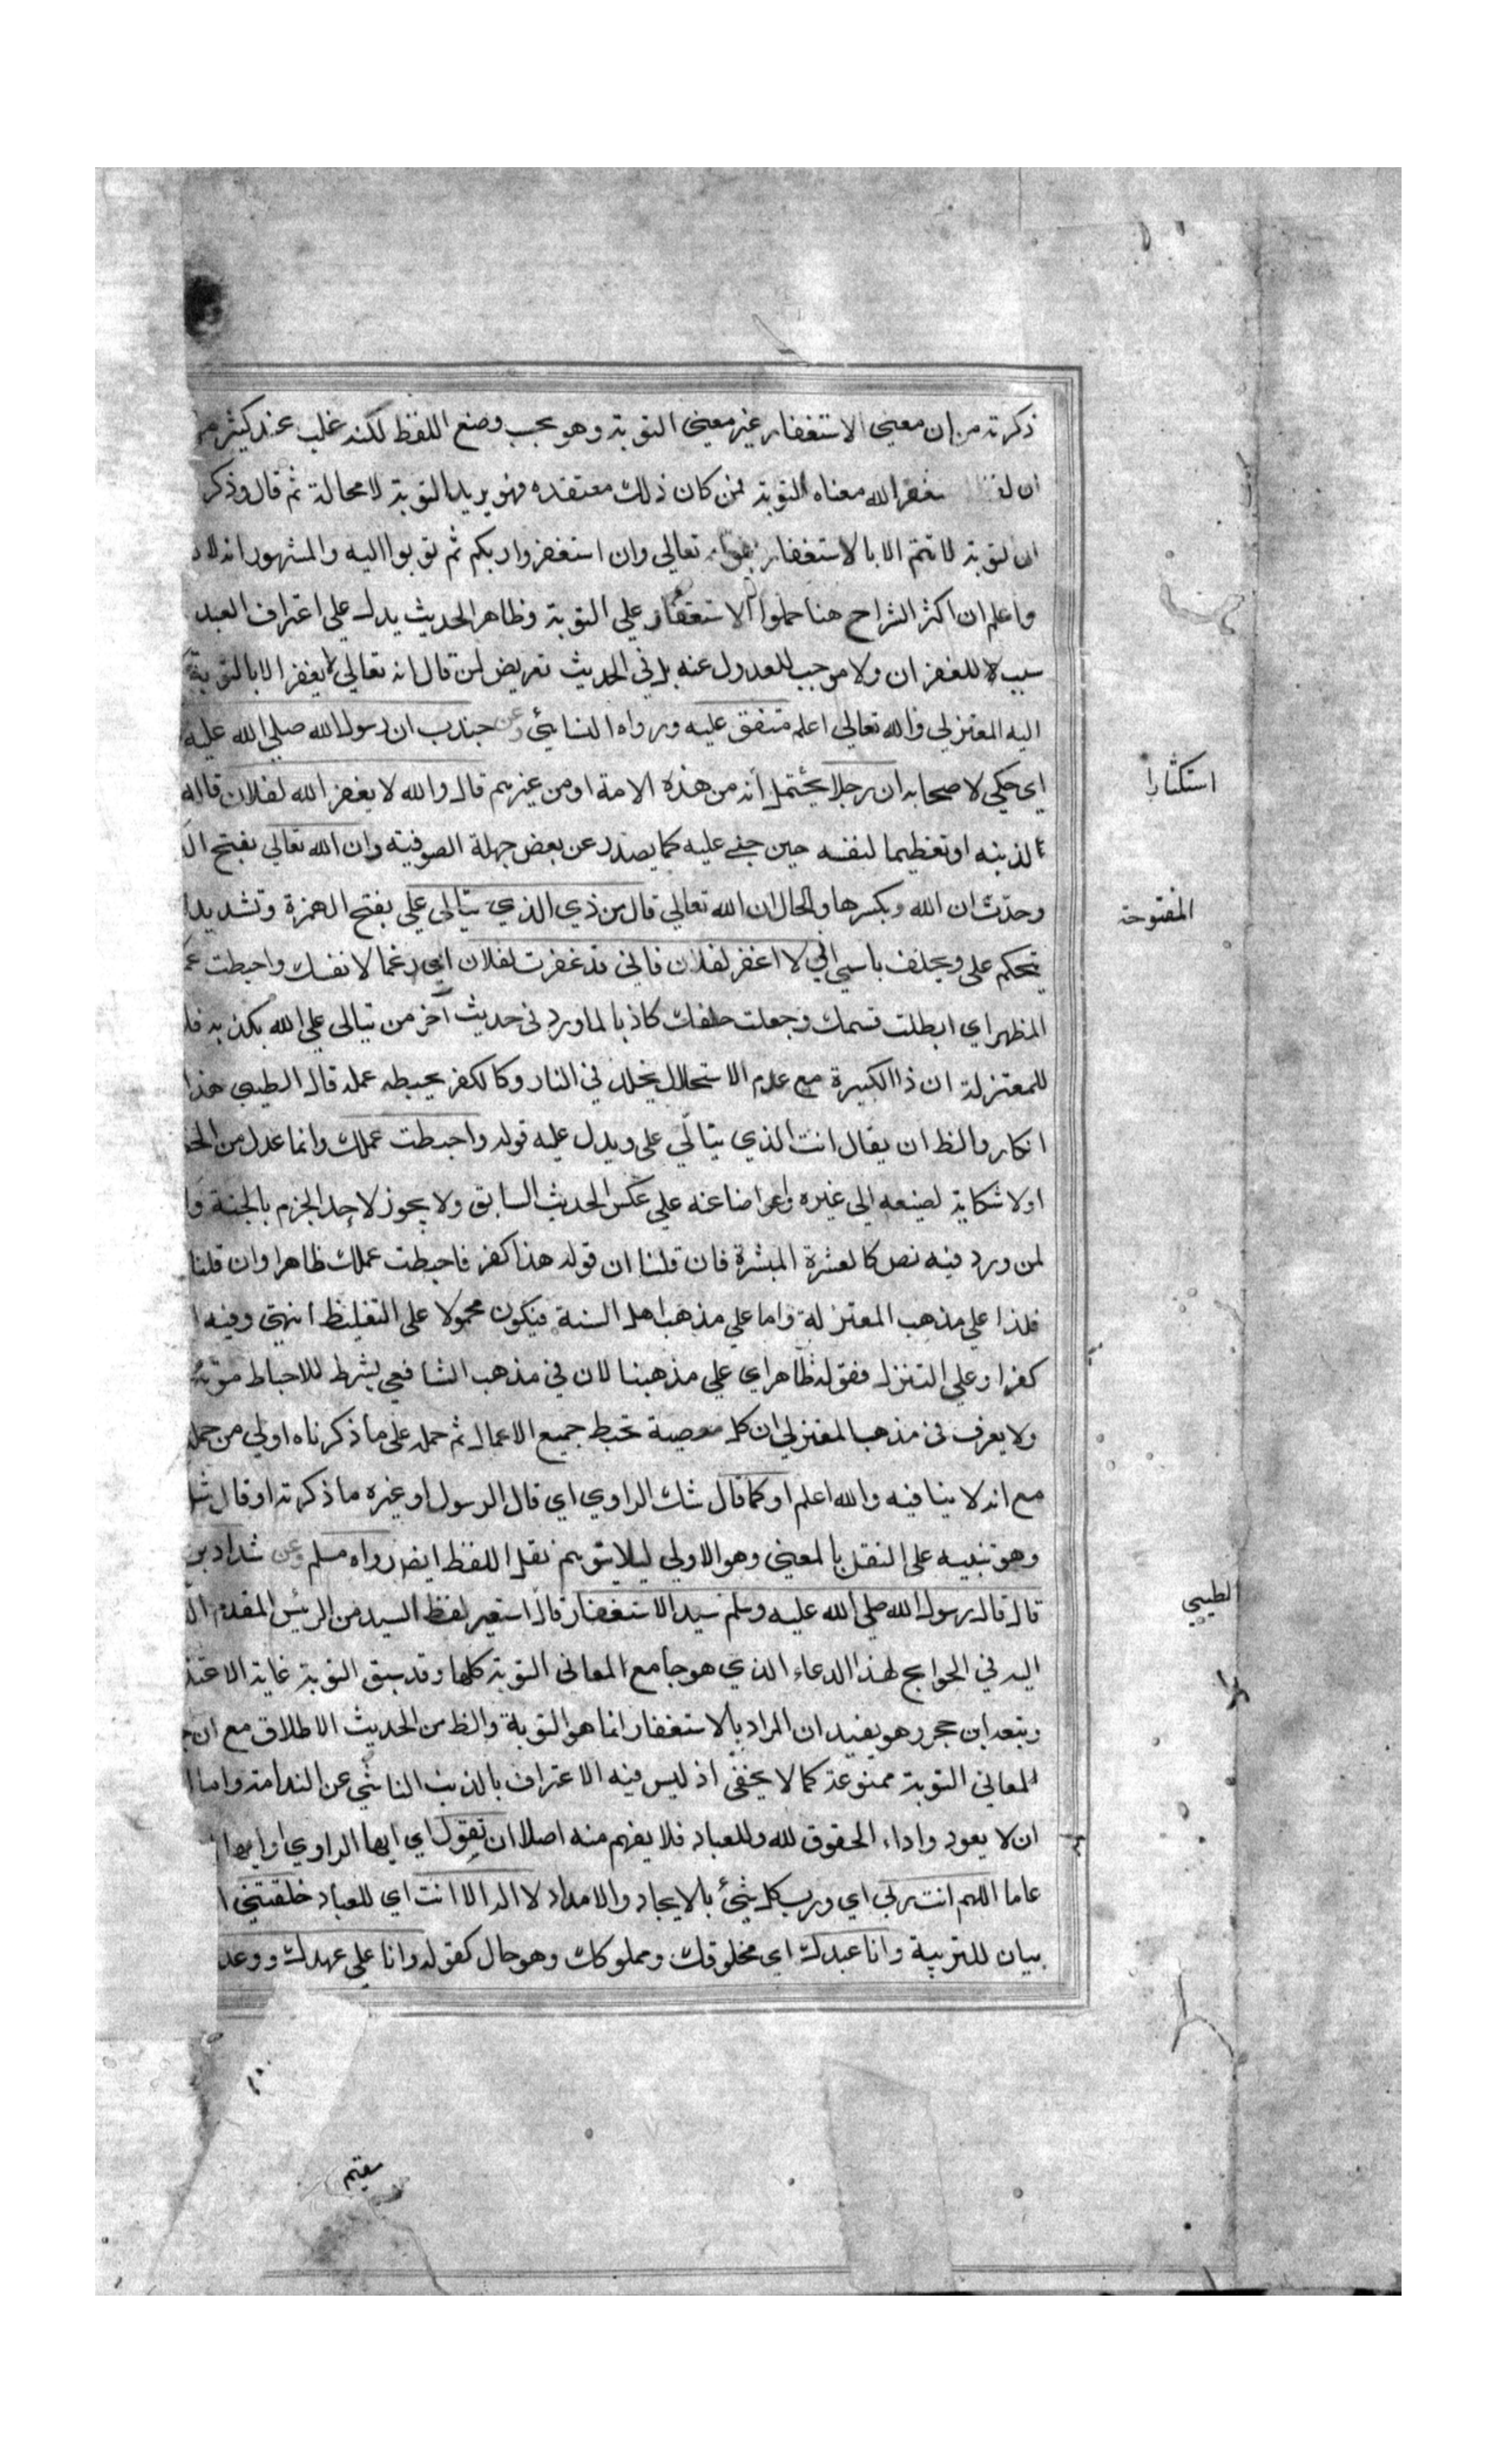 ذكرته من ان معنى الاستغفار غير معنى التوبة وهو بحسب وضع اللفظ لكنه غلب عند كثير
ان الله معناه التوبة فمن كان ذلك معتقده فهو يريد التوبة لا محالة ثم قال وذكر
ان لتوبة لا تتم الا بالاستغفار تعالى وان استغفروا ربكم ثم توبوا اليه والمشهور انه
واعلم ان اكثر الشراح هنا حملوا الاستغفار علي التوبة وظاهر الحديث يدل علي اعتراف العبد
سببا للغفران ولا موجب للعدول عنه بل في الحديث تعريض لمن قال انه تعالى لا يغفر الا بالتوبة
اليه المعتزلي والله تعالى اعلم متفق عليه ورواه النسائي وعن جندب ان رسول الله صلي الله عليه
اي حكي لاصحابه ان رجلا يحتمل أنه من هذه الامة او من غيرهم قال والله لا يغفر الله لفلان قاله
استكثارا
لذنبه او تعظيما لنفسه حين جني عليه كما يصدر عن بعض جهلة الصوفية وان الله تعالي بفتح
وحدث ان الله وبكسرها والحال ان الله تعالي قال من ذي الذي يتالى علي بفتح الهمزة وتشديد
المفتوحة
يتحكم على ويحلف باسمي اني لا اغفر لفلان فاني قد غفرت لفلان اي رغما لانفك واحبطت
المظهر اي ابطلت قسمك وجعلت حلفك كاذبا لما ورد في حديث آخر من يتالى علي الله يكذبه
للمعتزلة ان ذا الكبيرة مع عدم الاستحلال يخلد في النار وكالكفر يحبطه عمله قال الطيبي هذا
انكار والظ ان يقال انت الذي يتألى على ويدل عليه قوله واحبطت عملك وانما عدل من
اولا شكاية لصنيعه الى غيره واعراضا عنه علي عكس الحديث السابق ولا يجوز لاحد الجزم بالجنة
لمن ورد فيه نص كالعشرة المبشرة فان قلنا ان قوله هذا كفر فاحبطت عملك ظاهر وان قلنا
فلذا علي مذهب المعتزلة واما علي مذهب اهل السنة فيكون محمولا على التغليظ انتهى وفيه
كفرا وعلى التنزل فقوله ظاهر اي علي مذهبنا لان في مذهب الشافعي يشترط للاحباط
ولا يعرف في مذهب المعتزلي ان كل معصية تحبط جميع الاعمال ثم حمله على ما ذكرناه اولي من
مع انه لا ينافيه والله اعلم او كما قال شك الراوي اي قال الرسول او غيره ما ذكرته او قال
وهو تنبيه على النقل بالمعنى وهو الاولى ليلا يتوهم نقل اللفظ ايضا رواه مسلم وعن شداد بن
قال قال رسول الله صلي الله عليه وسلم سيد الاستغفار قال استعير لفظ السيد من الرئيس المقدم
الطيبي
اليه في الحوايج لهذا الدعاء الذي هو جامع المعاني التوبة كلها وقد سبق التوبة غاية
وتبعه ابن حجر وهو يفيد ان المراد بالاستغفار انما هو التوبة والظ من الحديث الاطلاق مع ان
لمعاني التوبة ممنوعة كما لا يخفى اذ ليس فيه الا اعتراف بالذنب الناشي عن الندامة واما
ان لا يعود واداء الحقوق لله وللعباد فلا يفهم منه اصلا ان تقول اي ايها الراوي او ايها
عاما اللهم انت ربي اي ورب كل شيئ بالايجاد والامداد لا اله الا انت اي للعباد خلقتني
بيان للتربية وانا عبدك اي مخلوقك ومملوكك وهو حال كقوله وانا علي عهدك ووعد